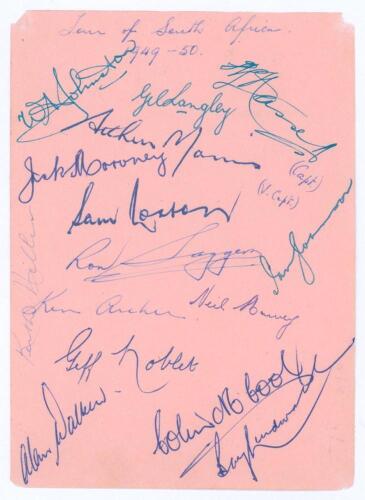 Tour of South Africa.
1949-50.
W A Johnston
A L Hassett
Gil Langley
(Capt)
Arthur Morris
(V. Capt)
Jack Moroney
Ian Johnson
Sam Loxton
Ron Saggers
Keith Miller
Ken Archer
Neil Harvey
Geff Noblet
Alan Walker
Colin McCool
Ray Lindwall